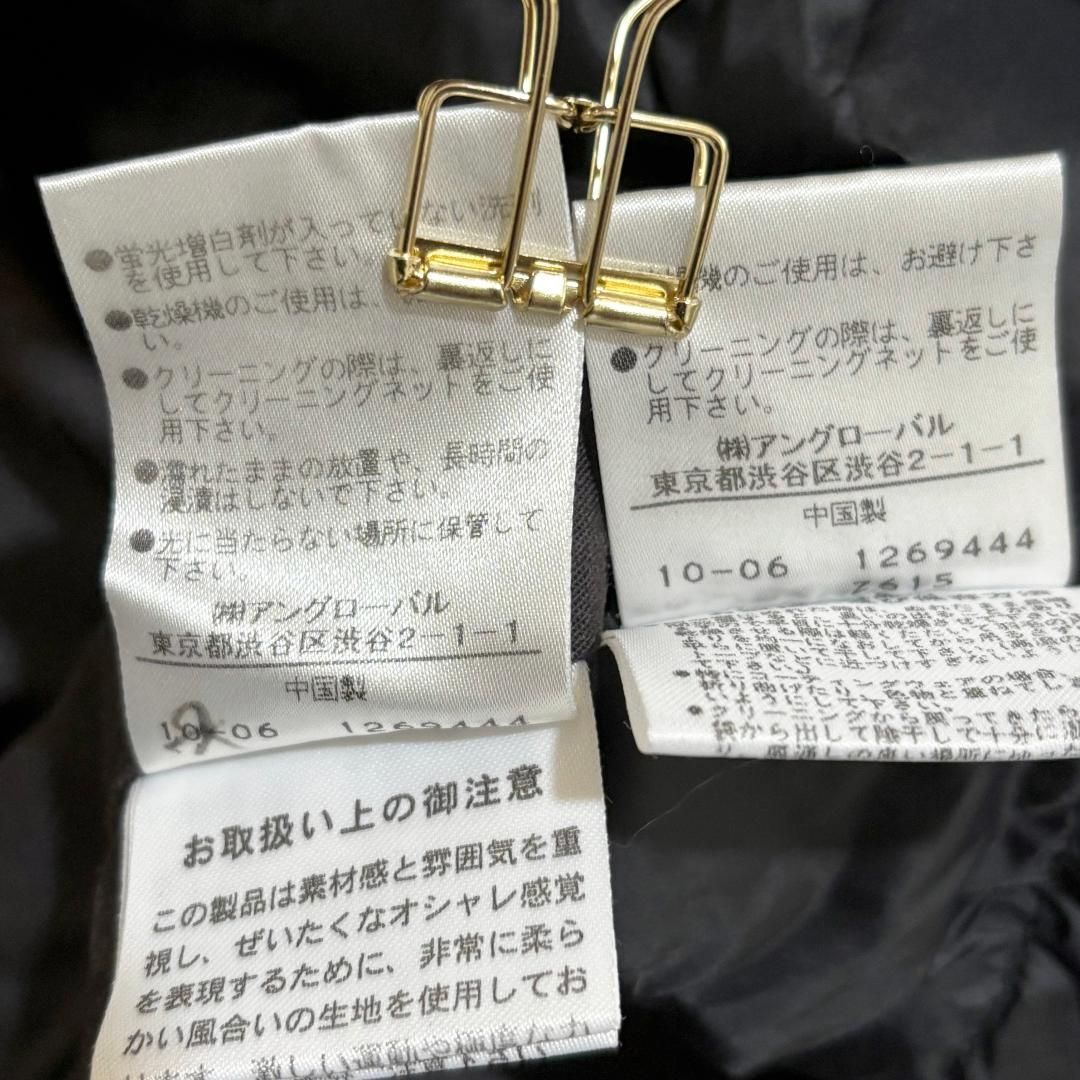 ●蛍光増白剤が入って ない洗剤
を使用して下さい。
●乾燥機のご使用は、
い。
●クリーニングの際は、裏返しに
してクリーニングネットをご使
用下さい。
●濡れたままの放置や、長時間の
浸漬はしないで下さい。
●光に当たらない場所に保管して
下さい。
㈱アングローバル
東京都渋谷区渋谷2-1-1
中国製
10-06 1269444
お取扱い上の御注意
この製品は素材感と雰囲気を重
視し、ぜいたくなオシャレ感覚
を表現するために、非常に柔ら
かい風合いの生地を使用してお
機のご使用は、お避け下さ
●クリーニングの際は、裏返しに
してクリーニングネットをご使
用下さい。
㈱アングローバル
東京都渋谷区渋谷2-1-1
中国製
10-06 1269444
Z615
●クリーニングから戻ってきたら
袋から出して陰干しで十分に